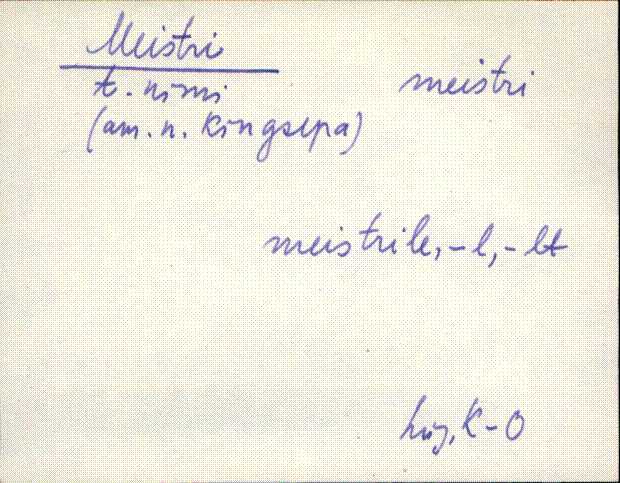 Meistri
meistri
t. nimi
(am. n. Kingsepa)
meistrile, -l, -lt
K-O